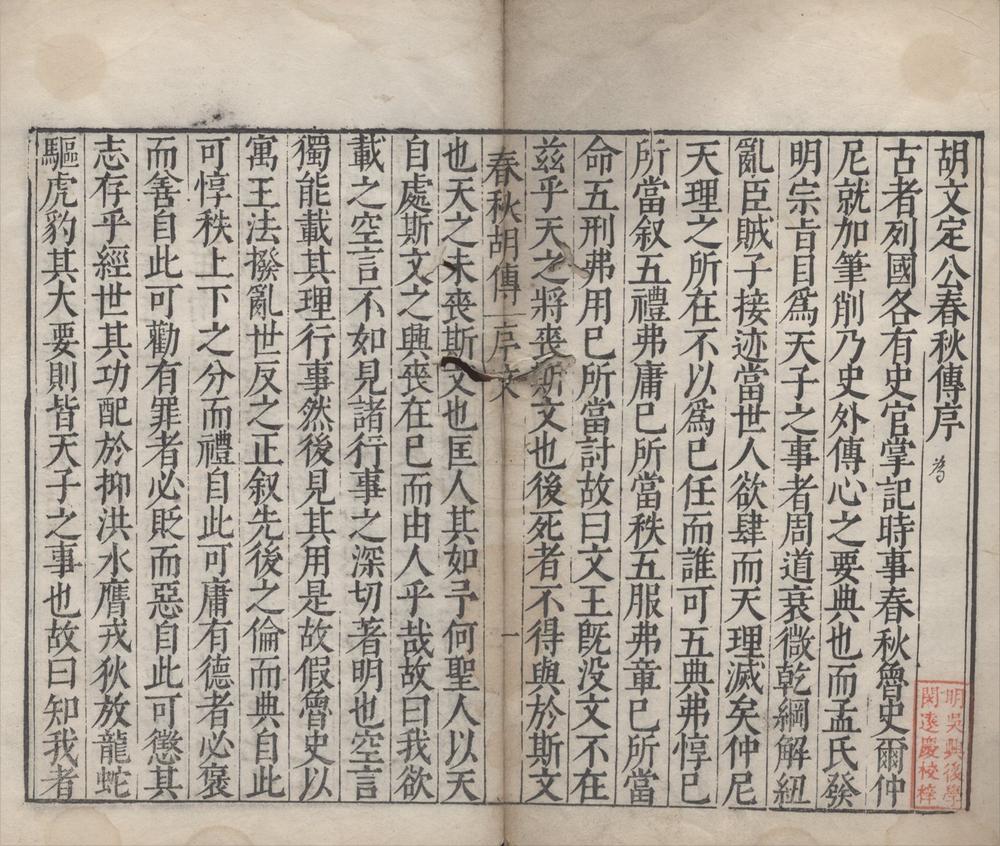 胡文定公春秋傳序
古者列國各有史官掌記時事春秋魯史爾仲
尼就加筆削乃史外傳心之要典也而孟氏發
明宗旨目爲天子之事者周道衰微乾綱解紐
亂臣賊子接迹當世人欲肆而天理滅矣仲尼
天理之所在不以爲己任而誰可五典弗惇己
所當叙五禮弗庸己所當秩五服弗章己所當
命五刑弗用己所當討故曰文王旣没文不在
兹乎天之將喪斯文也後死者不得與於斯文
春秋胡傳 序文 一
也天之未喪斯文也匡人其如予何聖人以天
自處斯文之興喪在己而由人乎哉故曰我欲
載之空言不如見諸行事之深切著明也空言
獨能載其理行事然後見其用是故假魯史以
寓王法撥亂世反之正叙先後之倫而典自此
可惇秩上下之分而禮自此可庸有德者必褒
而善自此可勸有罪者必貶而惡自此可懲其
志存乎經世其功配於抑洪水膺戎狄放龍蛇
驅虎豹其大要則皆天子之事也故曰知我者
明吳興後學
閔遂慶校梓